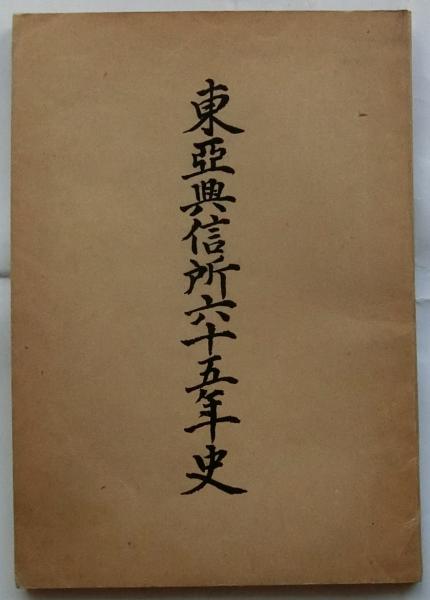 東亞興信所六十五年史